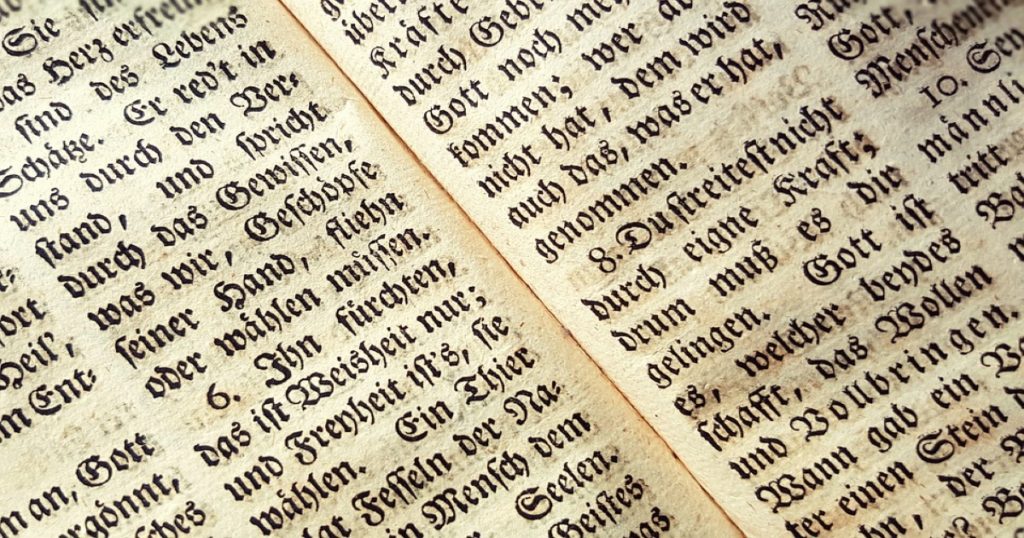 Heil',
m Ent-
an, Gott
ergönnt,
Sie
das Herz erfreun
ſind des Lebens
Schätze. Er red't in
uns durch den Ver-
ſtand, und ſpricht
durch das Gewiſſen,
was wir, Geſchöpfe
ſeiner Hand, fliehn
oder wählen müſſen.
6. Ihn fürchten,
das iſt Weisheit nur;
und Freyheit iſt's, ſie
wählen. Ein Thier
Feſſeln der Na-
Menſch dem
Seelen.
Geiſtes
Kräfte
durch Geb
Gott noch meh
kommen; wer
nicht hat, dem wird
auch das, was er hat,
genommen.
8. Du ſtreiteſt nicht
durch eigne Kraft;
drum muß es dir
gelingen. Gott iſt
es, welcher beydes
ſchafft, das Wollen
und Vollbringen.
Wann gab ein
ter einen Stein
der
Gott,
Menſchen
10.
männli
tritt